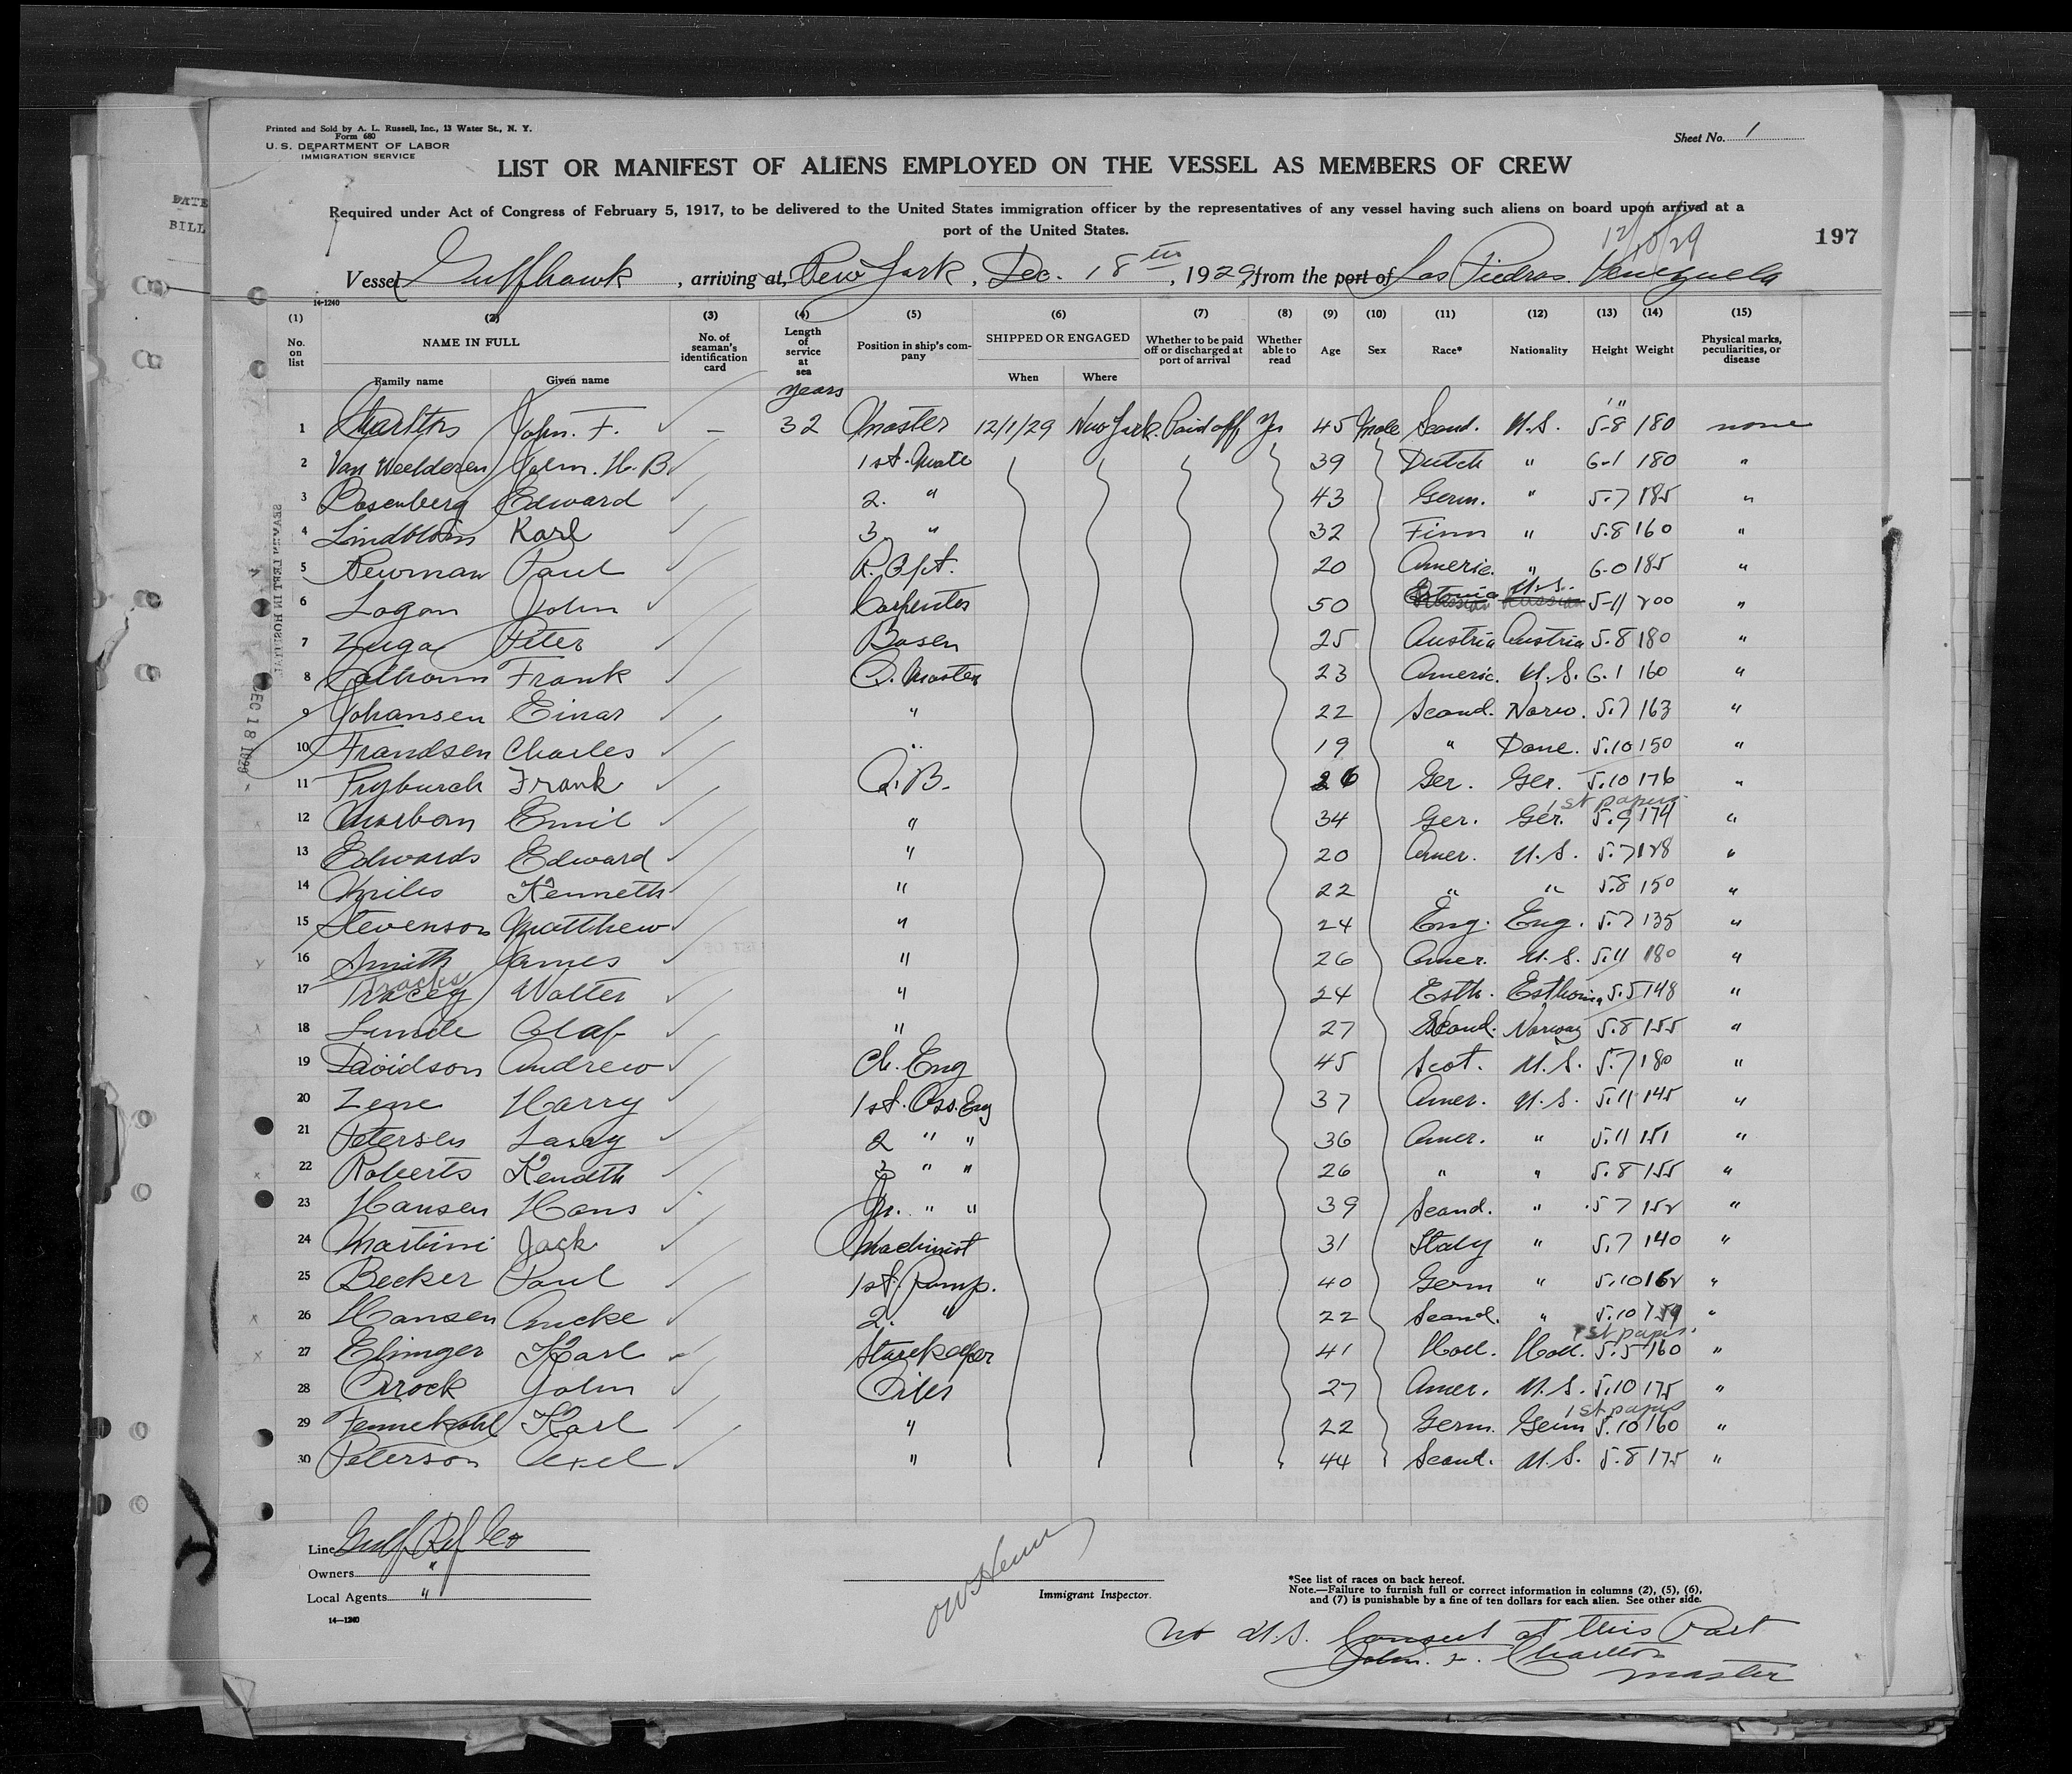 Printed and Sold by A. L. Russell, Inc., 13 Water St., N. Y.
Form 680
U. S. DEPARTMENT OF LABOR
IMMIGRATION SERVICE
Sheet No. 1
LIST OR MANIFEST OF ALIENS EMPLOYED ON THE VESSEL AS MEMBERS OF CREW
Required under Act of Congress of February 5, 1917, to be delivered to the United States immigration officer by the representatives of any vessel having such aliens on board upon arrival at a
port of the United States.
DATE
BILL
197
Vessel Gulfhawk, arriving at, New York, Dec. 18th, 1929, from the port of Las Piedras. Venezuela
14-1240
(1) (2) (3) (4) (5) (6) (7) (8) (9) (10) (11) (12) (13) (14) (15)
No. on list NAME IN FULL No. of seaman's identification card Length of service at sea Position in ship's company SHIPPED OR ENGAGED Whether to be paid off or discharged at port of arrival Whether able to read Age Sex Race* Nationality Height Weight Physical marks, peculiarities, or disease
Family name Given name When Where
years
1 Charlton John. F. – 32 Master 12/1/29 New York. Paid off Yes 45 Male Scand. U.S. 5-8 180 none
2 Van Weelderen John. H. B. 1st. Mate 39 Dutch " 6-1 180 "
3 Rosenberg Edward 2. " 43 Germ. " 5.7 185 "
4 Lindblom Karl 3. " 32 Finn " 5.8 160 "
5 Newman Paul R. Opt. 20 Americ. " 6-0 185 "
6 Logan John Carpenter 50 Estonia Russian U.S. Russian 5-11 200 "
7 Zuga Peter Bosen 25 Austria Austria 5.8 180 "
8 Calhoun Frank Q. Master 23 Americ. U.S. 6.1 160 "
9 Johansen Einar " 22 Scand. Norw. 5.7 163 "
10 Frandsen Charles " 19 " Dane. 5.10 150 "
11 Fryburch Frank A.B. 26 Ger. Ger. 5.10 176 "
1st papers.
12 Emil " 34 Ger. Ger. 5.9 174 "
13 Edwards Edward " 20 Amer. U.S. 5.7 128 "
14 Miles Kenneth " 22 " " 5.8 150 "
15 Stevenson Matthew " 24 Eng. Eng. 5.7 135 "
16 Smith James " 26 Amer. U.S. 5.11 180 "
17 Tracey Walter " 24 Esth. Esthonia 5.5 148 "
18 Lunde Olaf " 27 Scand. Norway 5.8 155 "
19 Davidson Andrew Ch. Eng 45 Scot. U.S. 5.7 180 "
20 Zene Harry 1st. Ass. Eng 37 Amer. U.S. 5.11 145 "
21 Petersen Larry 2 " " 36 Amer. " 5.11 151 "
22 Roberts Kenneth 3 " " 26 " " 5.8 155 "
23 Hansen Hans Jr. " " 39 Scand. " 5 7 152 "
24 Martini Jack Machinist 31 Italy " 5.7 140 "
25 Becker Paul 1st Pump. 40 Germ " 5.10 162 "
26 Hansen Aucke 2. " 22 Scand. " 5.10 159 "
1st papers.
27 Elinger Karl Storekeeper 41 Holl. Holl. 5.5 160 "
28 Crock John Oiler 27 Amer. U.S. 5.10 175 "
1st papers
29 Fennekohl Karl " 22 Germ. Germ 5.10 160 "
30 Peterson Axel " 44 Scand. U.S. 5.8 175 "
SEAMEN LEFT IN HOSPITAL
DEC 18 1929
Line Gulf Ref Co
Owners "
Local Agents "
14-1240
Immigrant Inspector.
*See list of races on back hereof.
Note.—Failure to furnish full or correct information in columns (2), (5), (6),
and (7) is punishable by a fine of ten dollars for each alien. See other side.
No U.S. Consul at this Port
John. F. Charlton
master